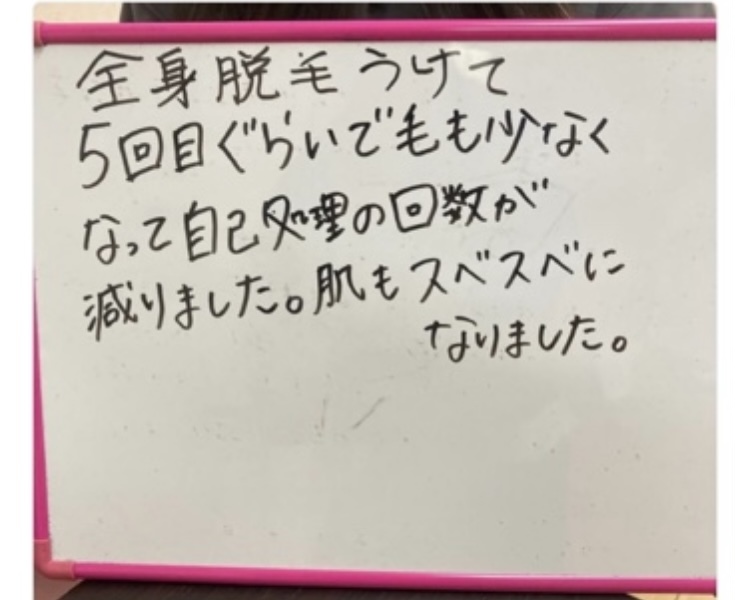 全身脱毛うけて
5回目ぐらいで毛も少なく
なって自己処理の回数が
減りました。肌もスベスベに
なりました。